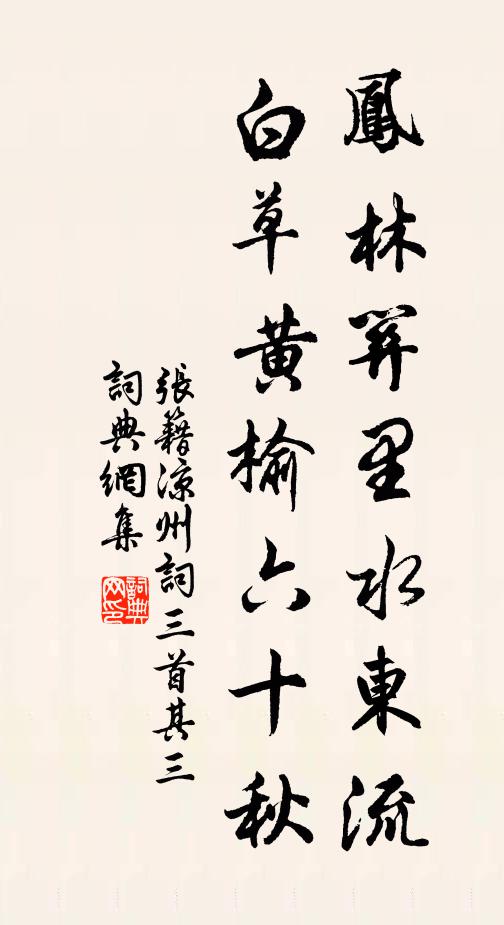 鳳林關里水東流
白草黃榆六十秋
張籍涼州詞三首其三
詞典網集
詞典网印